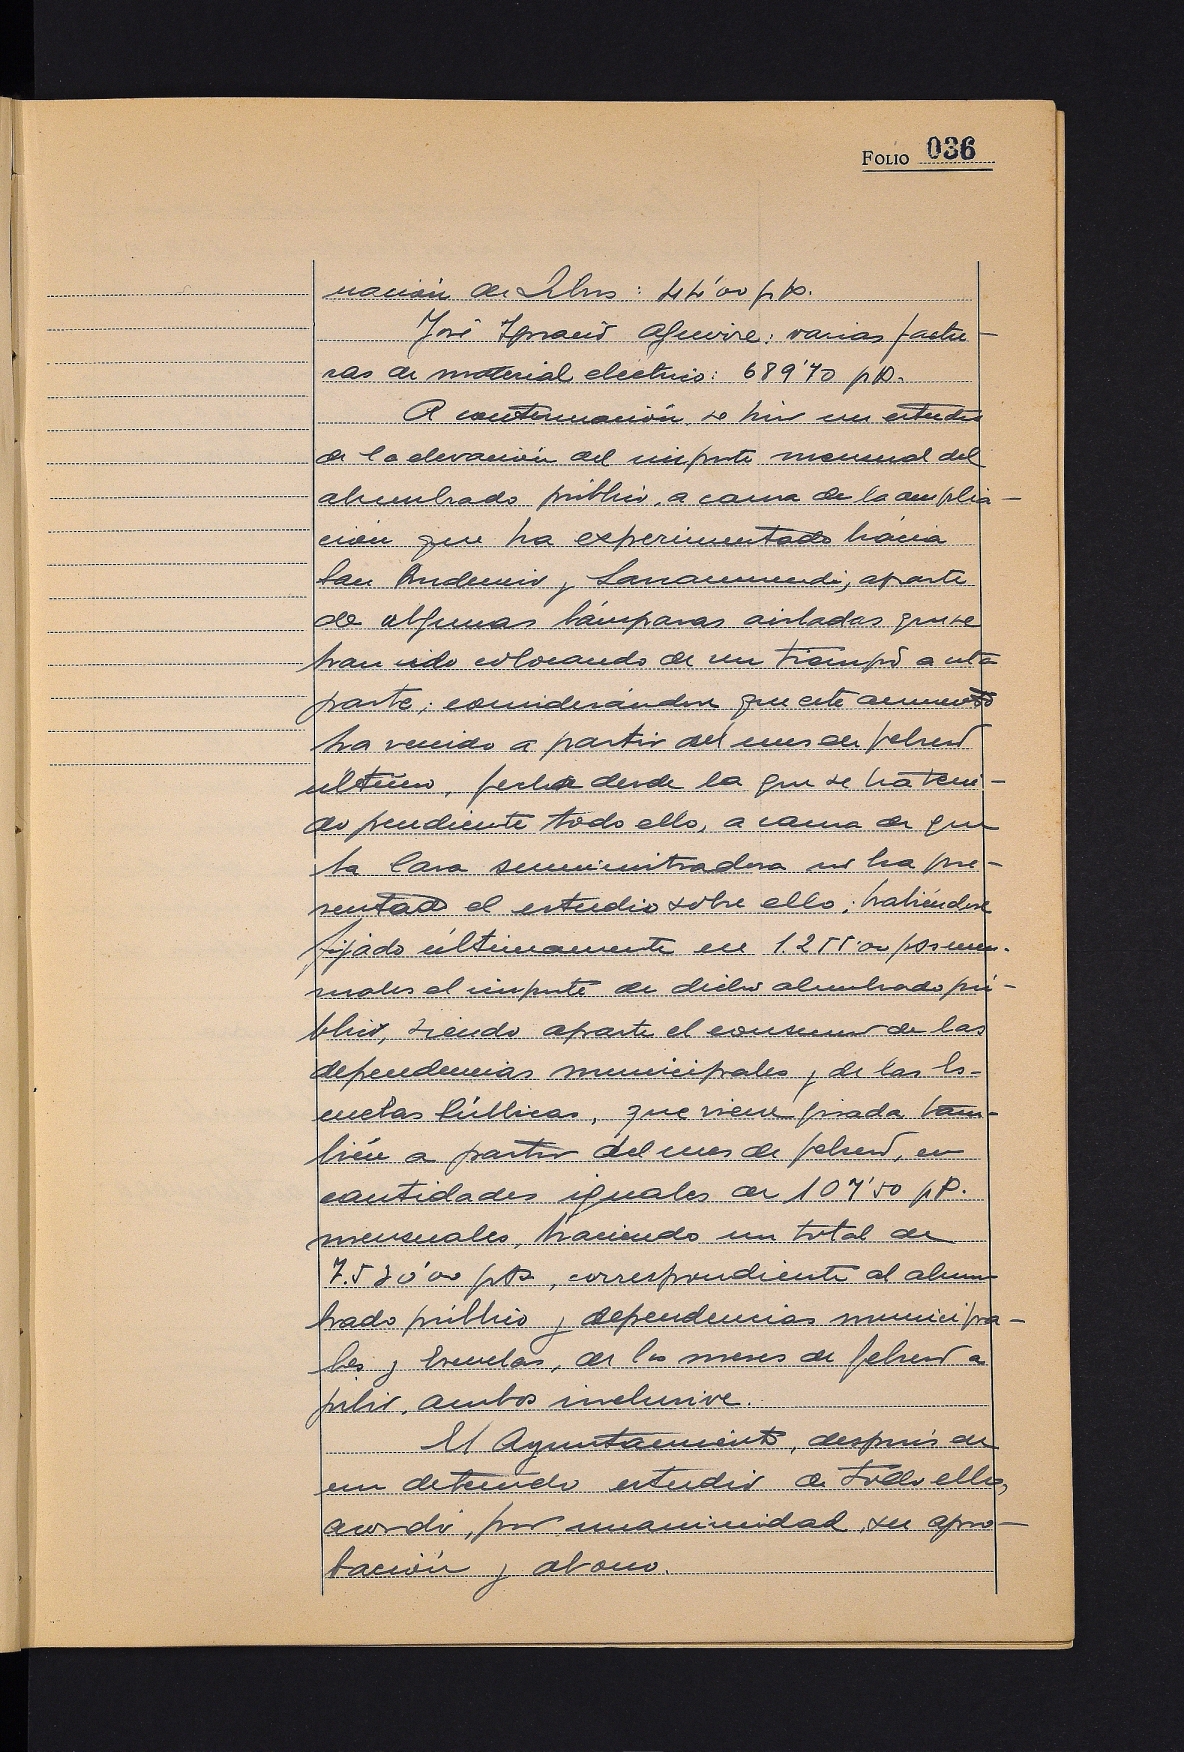 FOLIO 036
nación de Libros: 44'00 pts.
José Ignacio Aguirre: varias factu-
ras de material eléctrico: 689'70 pts.
A continuación, se hizo un estudio
de la elevación del importe mensual del
alumbrado público, a causa de la amplia-
ción que ha experimentado hácia
San Prudencio y Lasarmendi, aparte
de algunas lámparas aisladas que se
han ido colocando de un tiempo a esta
parte; considerándose que este aumento
ha venido a partir del mes de febrero
último, fecha desde la que se ha teni-
do pendiente todo ello, a causa de que
la Casa suministradora no ha pre-
sentado el estudio sobre ello; habiéndose
fijado últimamente en 1.255'00 pts men-
suales el importe de dicho alumbrado pú-
blico, siendo aparte el consumo de las
dependencias municipales y de las Es-
cuelas Públicas, que viene girada tam-
bién a partir del mes de febrero, en
cantidades iguales de 107'50 pts.
mensuales, haciendo un total de
7.530'00 pts, correspondiente al alum-
brado público y dependencias municipa-
les y Escuelas, de los meses de febrero a
julio, ambos inclusive.
El Ayuntamiento, después de
un detenido estudio de todo ello,
acordó, por unanimidad, su apro-
bación y abono.